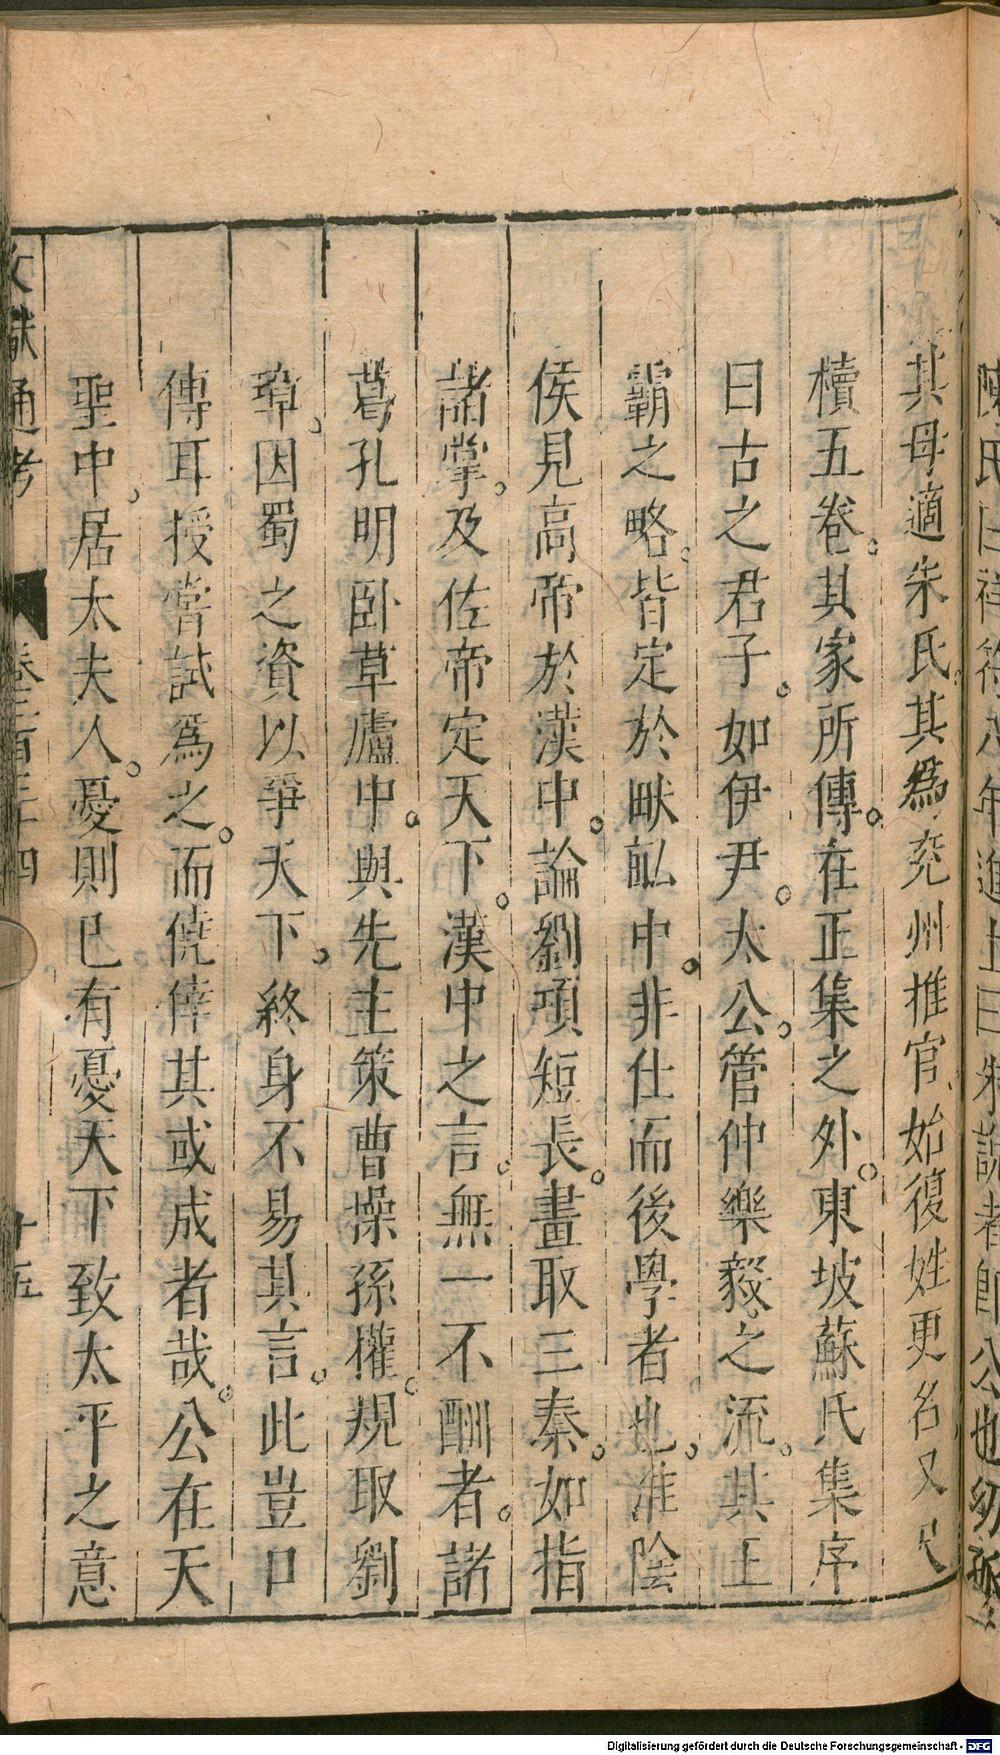 陳氏曰祥符八年進士曰朱説者即公也幼孤
其母適朱氏。其爲兖州推官、始復姓更名又尺
牘五卷。其家所傳。在正集之外。東坡蘇氏集序
曰古之君子。如伊尹。太公。管仲樂毅。之流。其王
霸之略。皆定於畎畝中。非仕而後學者也。淮陰
侯見高帝於漢中。論劉項短長。畫取三秦。如指
諸掌。及佐帝定天下。漢中之言。無一不酬者。諸
葛孔明卧草廬中。與先主策曹操孫權。規取劉
璋。因蜀之資以爭天下。終身不易其言。此豈口
傳耳授嘗試爲之。而僥倖其或成者哉。公在天
聖中。居太夫人。憂則已有憂天下致太平之意
文獻通考 卷二百三十四 十五
Digitalisierung gefördert durch die Deutsche Forschungsgemeinschaft - DFG